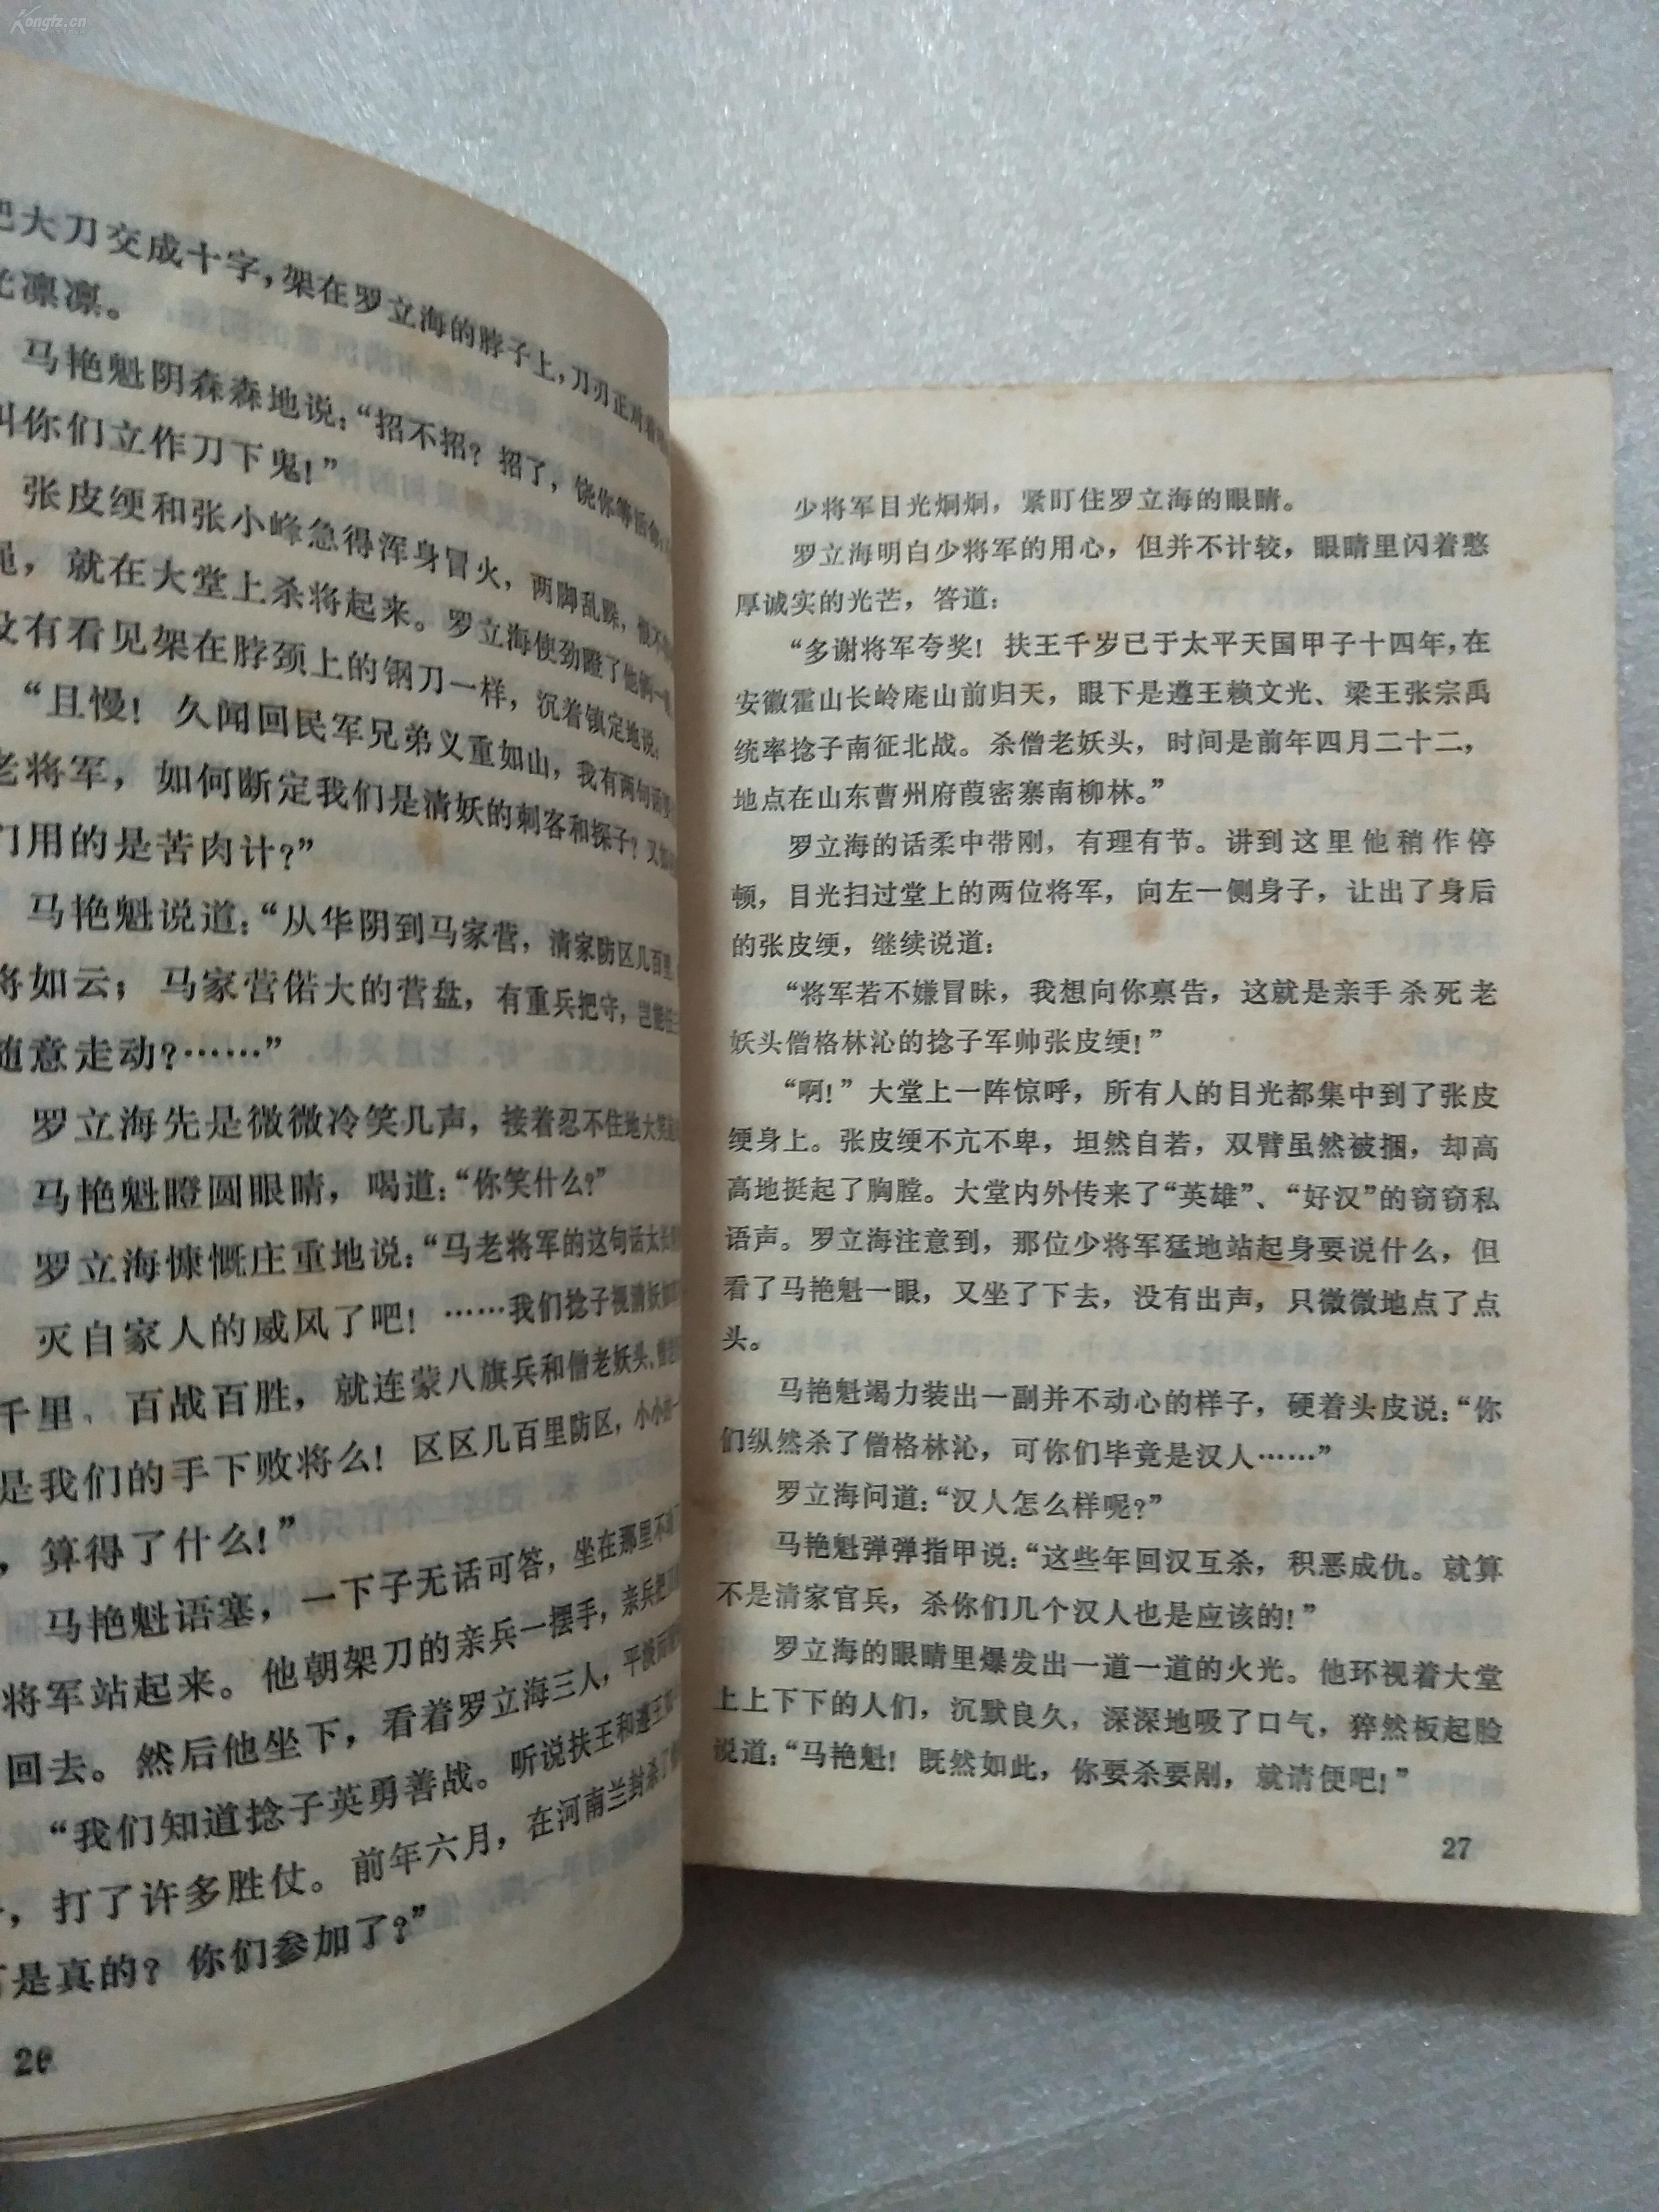 Kongfz.cn
把大刀交成十字，架在罗立海的脖子上，刀刃正对着
光凛凛。
马艳魁阴森森地说：“招不招？招了，饶你等
叫你们立作刀下鬼！”
张皮绠和张小峰急得浑身冒火，两脚乱跺，恨不
就在大堂上杀将起来。罗立海使劲瞪了他俩一
没有看见架在脖颈上的钢刀一样，沉着镇定地说：
“且慢！久闻回民军兄弟义重如山，我有两句话要
老将军，如何断定我们是清妖的刺客和探子？又
们用的是苦肉计？”
马艳魁说道：“从华阴到马家营，清家防区几百里，
将如云；马家营偌大的营盘，有重兵把守，岂能
随意走动？……”
罗立海先是微微冷笑几声，接着忍不住地大笑
马艳魁瞪圆眼睛，喝道：“你笑什么？”
罗立海慷慨庄重地说：“马老将军的这句话太长
灭自家人的威风了吧！……我们捻子视清妖如
千里，百战百胜，就连蒙八旗兵和僧老妖头、
是我们的手下败将么！区区几百里防区，小小
，算得了什么！”
马艳魁语塞，一下子无话可答，坐在那里不
将军站起来。他朝架刀的亲兵一摆手，亲兵把
回去。然后他坐下，看着罗立海三人，平
“我们知道捻子英勇善战。听说扶王和遵王
，打了许多胜仗。前年六月，在河南兰封杀了
是真的？你们参加了？”
26
少将军目光炯炯，紧盯住罗立海的眼睛。
罗立海明白少将军的用心，但并不计较，眼睛里闪着憨
厚诚实的光芒，答道：
“多谢将军夸奖！扶王千岁已于太平天国甲子十四年，在
安徽霍山长岭庵山前归天，眼下是遵王赖文光、梁王张宗禹
统率捻子南征北战。杀僧老妖头，时间是前年四月二十二，
地点在山东曹州府葭密寨南柳林。”
罗立海的话柔中带刚，有理有节。讲到这里他稍作停
顿，目光扫过堂上的两位将军，向左一侧身子，让出了身后
的张皮绠，继续说道：
“将军若不嫌冒昧，我想向你禀告，这就是亲手杀死老
妖头僧格林沁的捻子军帅张皮绠！”
“啊！”大堂上一阵惊呼，所有人的目光都集中到了张皮
绠身上。张皮绠不亢不卑，坦然自若，双臂虽然被捆，却高
高地挺起了胸膛。大堂内外传来了“英雄”、“好汉”的窃窃私
语声。罗立海注意到，那位少将军猛地站起身要说什么，但
看了马艳魁一眼，又坐了下去，没有出声，只微微地点了点
头。
马艳魁竭力装出一副并不动心的样子，硬着头皮说：“你
们纵然杀了僧格林沁，可你们毕竟是汉人……”
罗立海问道：“汉人怎么样呢？”
马艳魁弹弹指甲说：“这些年回汉互杀，积恶成仇。就算
不是清家官兵，杀你们几个汉人也是应该的！”
罗立海的眼睛里爆发出一道一道的火光。他环视着大堂
上上下下的人们，沉默良久，深深地吸了口气，猝然板起脸
说道：“马艳魁！既然如此，你要杀要剐，就请便吧！”
27